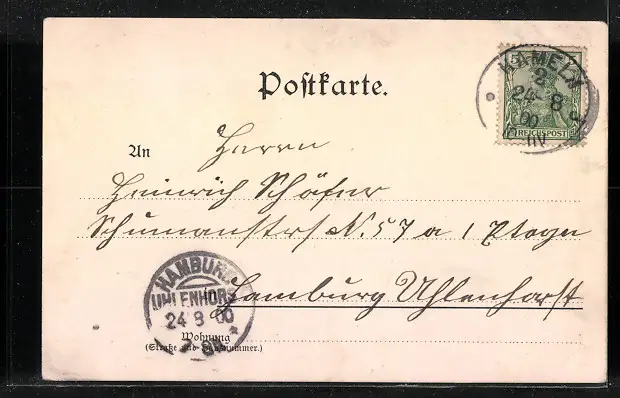 Postkarte.
5
REICHSPOST
HAMELN
2
24 8
00
An Herrn
Heinrich Schäfer
Schumanstrs N. 57 a I Etage
Hamburg Uhlenhorst
HAMBURG
UHLENHORST
24 8 00
Wohnung
(Straße und Hausnummer.)